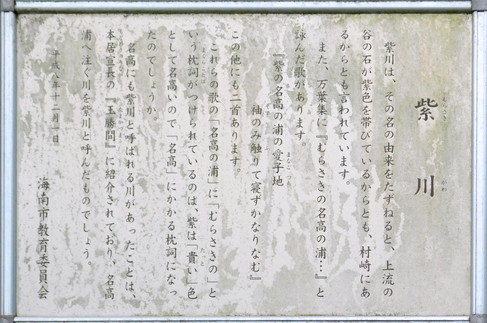 紫川
むらさき がわ
紫川は、その名の由来をたずねると、上流の
谷の石が紫色を帯びているからとも、村崎にあ
るからとも言われています。
また、万葉集に『むらさきの名高の浦…』と
詠んだ歌があります。
『紫の名高の浦の愛子地
まなご つち
袖のみ触りて寝ずかなりなむ』
この他にも二首あります。
これらの歌の「名高の浦」に「むらさきの」と
いう枕詞がつけられているのは、紫は「貴い」色
まくらことば
として名高いので「名高」にかかる枕詞になっ
たのでしょうか。
名高にも紫川と呼ばれる川があったことは、
本居宣長の『玉勝間』に紹介されており、名高
浦へ注ぐ川を紫川と呼んだものでしょう
平成八年十一月一日
海南市教育委員会